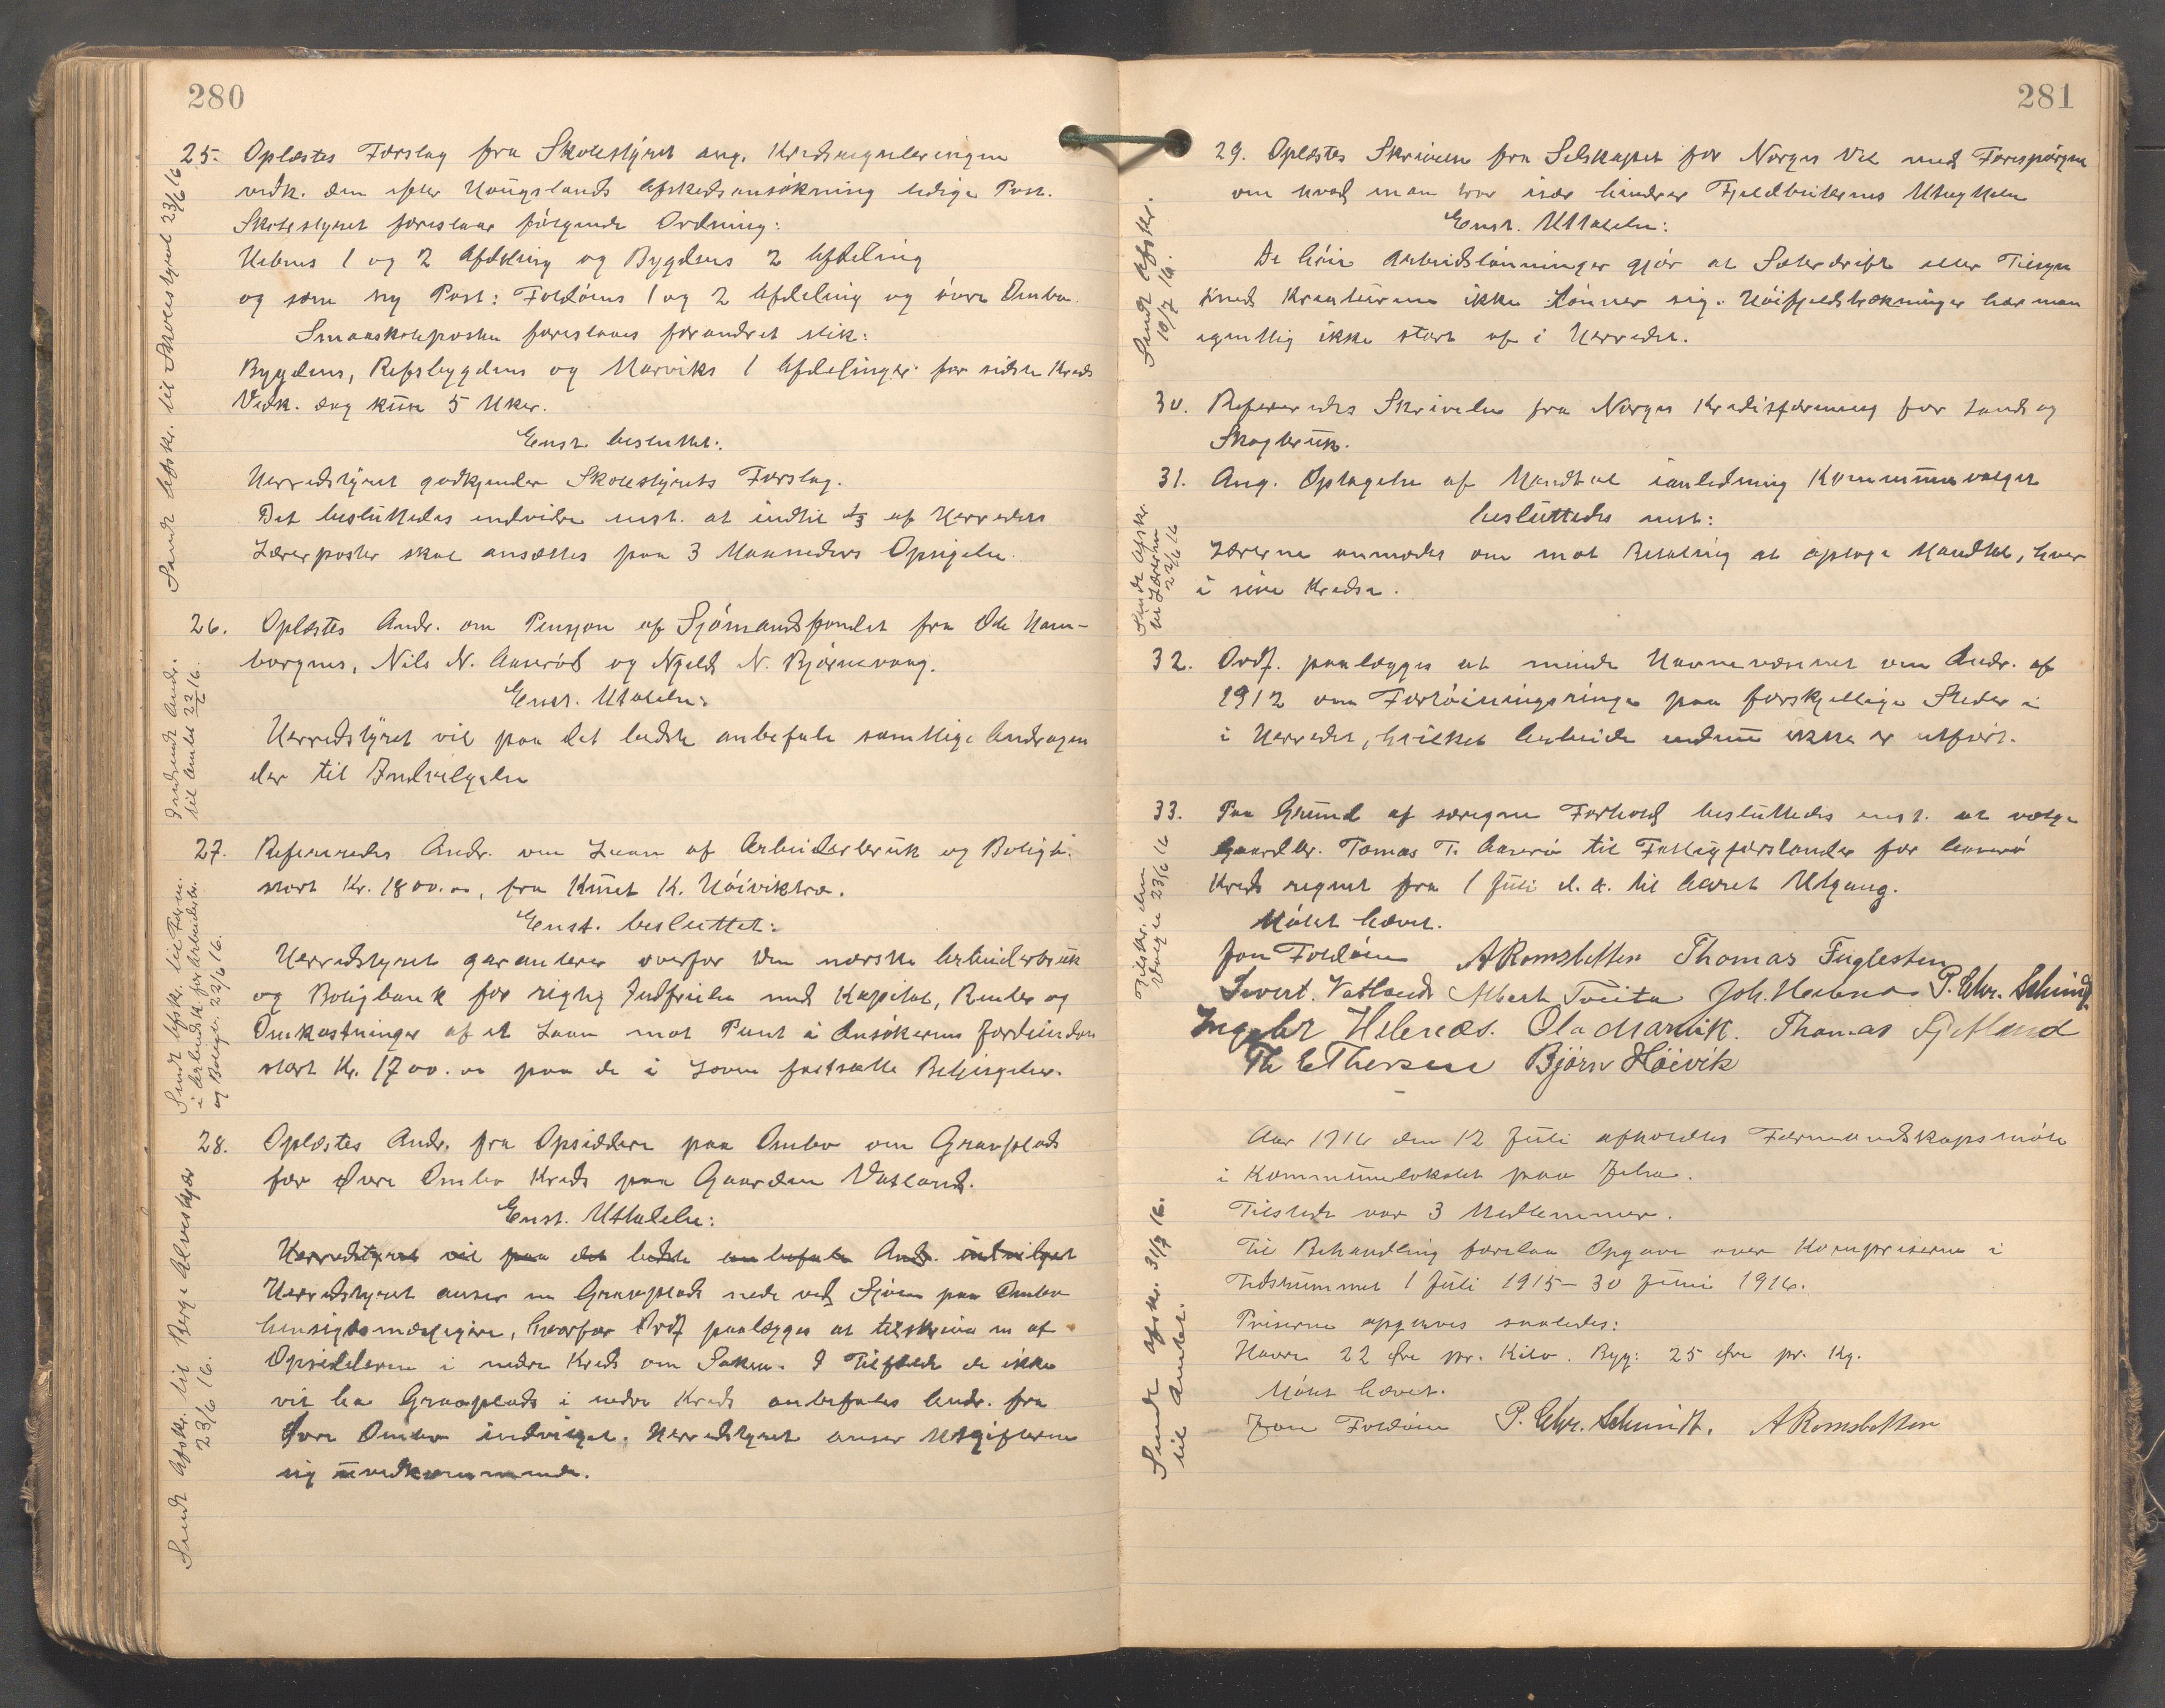 280
25. Oplæstes Forslag fra Skolestyret ang. Kredsreguleringen
vedk. den efter Haugslands Afskedsansøkning ledige Post.
Skolestyret foreslaar følgende Ordning:
Hebnes 1 og 2 Afdeling og Bygdens 2 Afdeling
og som ny Post: Foldøens 1 og 2 Afdeling og øvre Ombo.
Smaaskoleposten foreslaaes forandret slik:
Bygdens, Refsbygdens og Marviks 1 Afdelinger for sidste Kreds
Vedk. dog kun 5 Uker.
Enst. besluttet:
Herredstyret godkjender Skolestyrets Forslag.
Det besluttedes endvidere enst. at indtil 1/3 af Herredets
Lærerposter skal ansættes paa 3 Maaneders Opsigelse.
Sendt Afskr. til Skolestyret 23/6 16
26. Oplæstes Andr. om Pension af Sjømandsfondet fra Ole Ham-
borgnes, Nils N. og Njeld N. Bjørnevaag.
Enst. Uttalelse:
Herredstyret vil paa det bedste anbefale samtlige Andragen
der til Indvilgelse
Indsendt Andr.
til Amtet 22/6 16.
27. Refereredes Andr. om Laan af Arbeiderbruk og Boligb.
stort Kr. 1800.00, fra Knut K. Høiviktræ.
Enst. besluttet:
Herredstyret garanterer overfor den norske Arbeiderbruk
og Boligbank for rigtig Indfrielse med Kapital, Renter og
Omkostninger af et Laan mot Pant i Ansøkerens Eiendom
stort Kr. 1700.00 paa de i Loven fastsatte Betingelser.
Sendt Afskr. til Form.
i Arbeidsk. for Arbeiderbr.
og Boligb. 22/6 16.
28. Oplæstes Andr. fra Opsiddere paa Ombo om Gravplads
for Øvre Ombo Kreds paa Gaarden Vatland.
Enst. Uttalelse:
Herredstyret vil paa det bedste anbefale Andr. indvilget
Herredstyret anser en Gravplads nede ved Sjøen paa Ombo
hensigtsmæssigere, hvorfor Ordf paalægges at tilskrive en af
Opsidderne i nedre Kreds om Saken. I Tilfælde de ikke
vil ha Gravplads i nedre Kreds anbefales Andr. fra
Øvre Ombo indvilget. Herredstyret anser Utgifterne
sig uvedkommende.
Sendt Afskr. til Berge Alveskjær
23/6 16.
281
29. Oplæstes Skrivelse fra Selskapet for Norges Vel med Forespørgsel
om hvad man tror især hindrer Fjeldbeiternes Utnyttelse
Enst. Uttalelse:
De høie Arbeidslønninger gjør at Sæterdrift eller Tilsyn
med Kreaturene ikke lønner sig. Høifjeldstrækninger har man
egentlig ikke stort af i Herredet.
Sendt Afskr.
10/7 16.
30. Refereredes Skrivelse fra Norges Kreditforening for Land og
Skogbruk.
31. Ang. Optagelse af Mandtal ianledning Kommunevalget
besluttedes enst:
Lærerne anmodes om mot Betaling at optage Mandtal, hver
i sine Kredse.
Sendt Afskr.
til Lærerne
22/6 16
32. Ordf. paalægges at minde Havnevæsenet om Andr. af
1912 om Fortøiningsringe paa forskjellige Steder i
i Herredet, hvilket Arbeide endnu ikke er utført.
33. Paa Grund af særegne Forhold besluttedes enst. at vælge
Gaardbr. Tomas T. til Fattigforstander for
Kreds regnet fra 1 Juli d. A. til Aarets Utgang.
Møtet hævet.
Tilskr. den
valgte 23/6 16
Jon Foldøen A Romsbotten Thomas Fuglesteen
Sivert Vatland Albert Tveita Joh. Hebnes P. Chr. Schmidt
Ingebr Hebnes. Ola Marvik. Thomas Fjetland
Th E Thersen Bjørn Høivik
Aar 1916 den 12 Juli afholdtes Formandskapsmøte
i Kommunelokalet paa Jelsa.
Tilstede var 3 Medlemmer.
Til Behandling forelaa Opgave over Kornpriserne i
Tidsrummet 1 Juli 1915 – 30 Juni 1916.
Priserne opgaves saaledes:
Havre 22 Øre pr. Kilo. Byg: 25 Øre pr. Kg.
Møtet hævet.
Jon Foldøen P. Chr. Schmidt. A Romsbotten
Sendt Afskr. 31/7 16.
til Amtet.